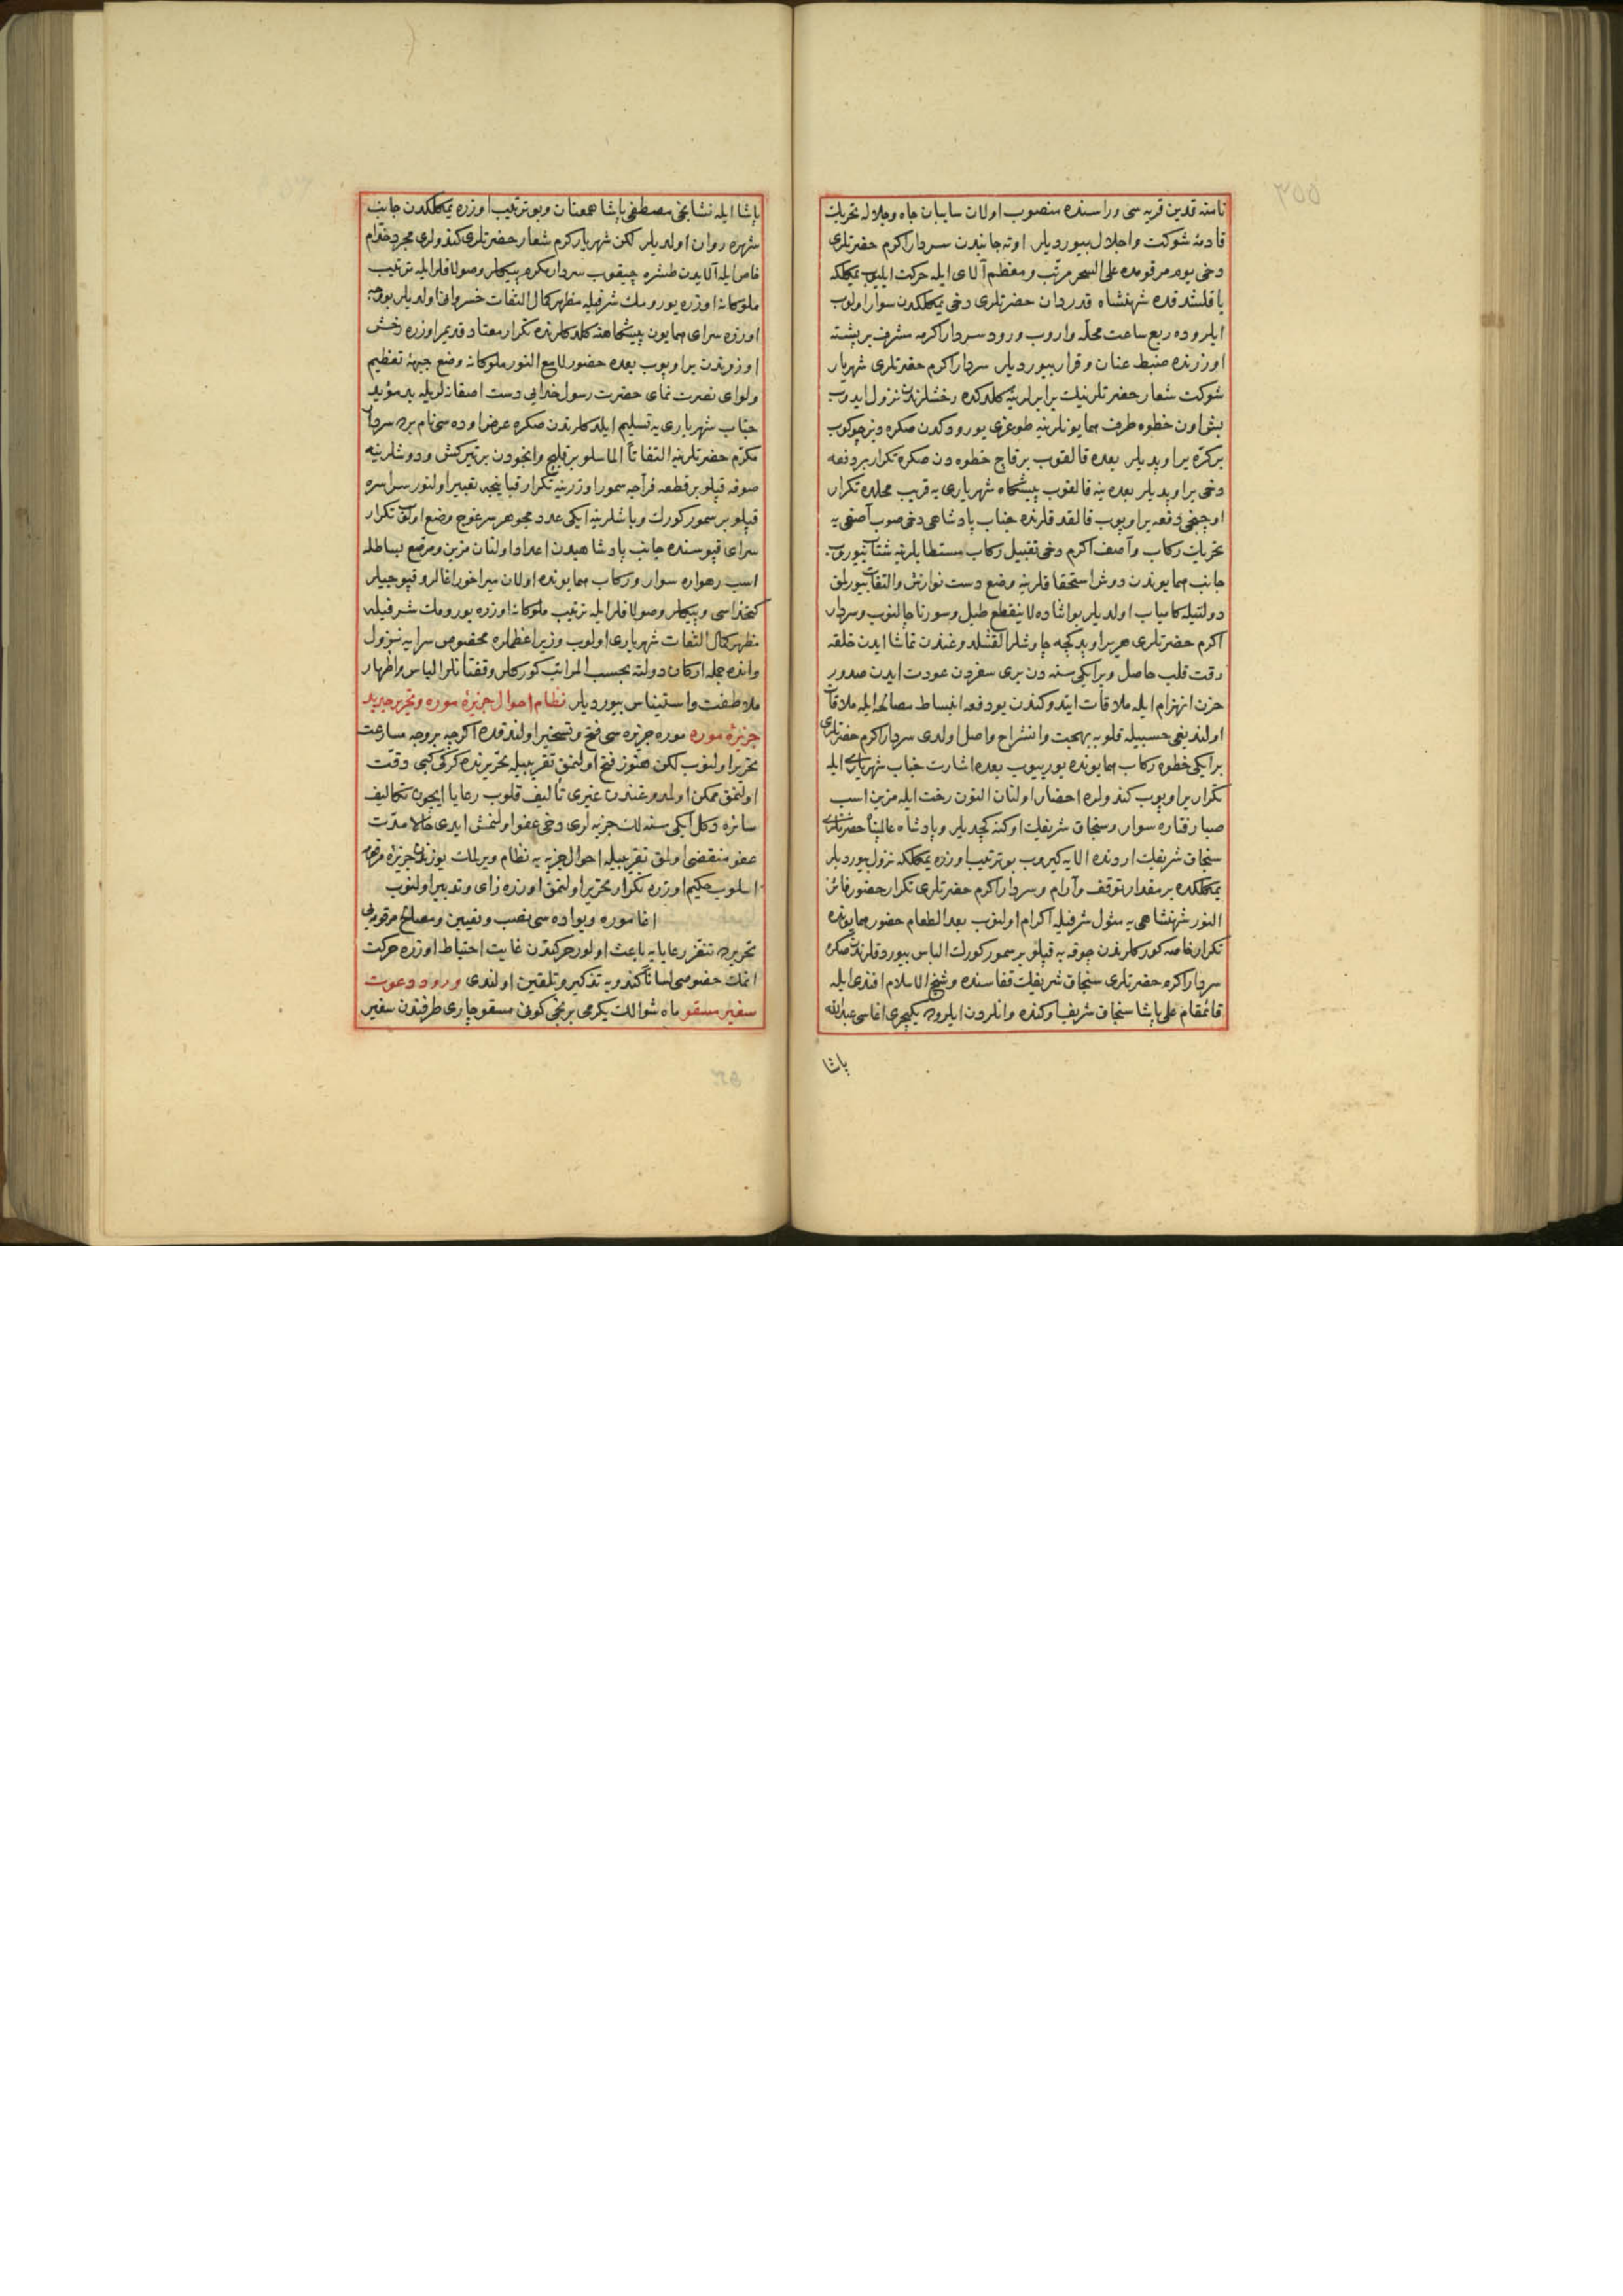 نامنه قدین قریه سی وراسنده منصوب اولان سایبان جاه وجلاله تحریك
قادمهٔ شوکت واجلال بیوردیلر اوته جانبدن سردار اکرم حضرتلری
دخی یوم مرقومده علی السحر مرتب ومعظم آلای ایله حرکت ایلیوب یمکلکه
یاقلشدقده شهنشاه قدردان حضرتلری دخی یمکلکدن سوار اولوب
ایلروده ربع ساعت محلّه واروب ورود سردار اکرمه مشرف بر پشته
اوزرنده ضبط عنان و قرار بیوردیلر سردار اکرم حضرتلری شهریار
شوکت شعار حضرتلرینك برابرلرینه کلدکده رخشلرندن نزول ایدوب
بش اون خطوه طرف همایونلرینه طوغری یورودکدن صکره دیز چوکوب
بر کره یر اوپدیلر بعده قالقوب بر قاچ خطوه دن صکره تکرار بر دفعه
دخی یر اوپدیلر بعده ینه قالقوب پیشکاه شهریاری یه قریب محلده تکرار
اوچنجی دفعه یر اوپوب قالقدقلرنده جناب پادشاهی دخی صوب آصفی یه
تحریك رکاب وآصف اکرم دخی تقبیل رکاب مستطابلرینه شتاب بیوروب
جانب همایوندن دوش استحقاقلرینه وضع دست نوازش والتفات بیوریلق
دولتیله کامیاب اولدیلر بو اثناده لا ینقطع طبل وسورنا چالنوب وسردار
اکرم حضرتلری هر یر اوپدکجه چاوشلر القشلدوغندن تماشا ایدن خلقه
رقت قلب حاصل وبر ایکی سنه دن بری سفردن عودت ایدن صدور
حزن انهزام ایله ملاقات ایتدوکندن بو دفعه انبساط مصالحه ایله ملاقات
اولندیغی حسبیله قلوبه بهجت وانشراح واصل اولدی سردار اکرم حضرتلری
بر ایکی خطوه رکاب همایونده یوریوب بعده اشارت جناب شهریاری ایله
تکرار یر اوپوب کندولره احضار اولنان التون رخت ایله مزین اسب
صبا رفتاره سوار وسنجاق شریفك اوکنه کچدیلر وپادشاه عالمپناه حضرتلری
سنجاق شریفك اردنده الایه کیروب بو ترتیب اوزره یمکلکه نزول بیوردیلر
یمکلکده بر مقدار توقف وآرام وسردار اکرم حضرتلری تکرار حضور فائز
النور شهنشاهی یه مثول شرفیله اکرام اولنوب بعد الطعام حضور همایونده
تکرار خاصه کورکلرندن چوقه یه قپلو بر سمور کورك الباس بیوردقلرندن صکره
سردار اکرم حضرتلری سنجاق شریفك قفاسنده وشیخ الاسلام افندی ایله
قائمقام علی پاشا سنجاق شریف اوکنده وانلردن ایلروده یکیچری اغاسی عبدالله
پاشا
پاشا ایله نشانجی مصطفی پاشا همعنان وبو ترتیب اوزره یمکلکدن جانب
شهره روان اولدیلر لکن شهریار کرم شعار حضرتلری کندولری مجرد خدّام
خاص ایله آلایدن طشره چیقوب سردار مکرم پیکلر وصولاقلر ایله ترتیب
ملوکانه اوزره یورومك شرفیله مظهر کمال التفات خسروانه اولدیلر بو وجه
اوزره سرای همایون پیشکاهنه کلدکلرنده تکرار معتاد قدیم اوزره رخش
اوزرندن یر اوپوب بعده حضور لامع النور ملوکانه وضع جبههٔ تعظیم
ولوای نصرت نمای حضرت رسول خدایی دست آصفانه لریله ید مؤید
جناب شهریاری یه تسلیم ایلدکلرندن صکره عرض اوده سی نام یرده سردار
مکرم حضرتلرینه التفاتاً الماسلو بر قلیج وانجودن بر تیرکش ودوشلرینه
صوفه قپلو بر قطعه فراجه سمور اوزرینه تکرار قبانیچه تعبیر اولنور سراسره
قپلو بر سمور کورك وباشلرینه ایکی عدد مجوهر سرغوج وضع اولنوب تکرار
سرای قپوسنده جانب پادشاهیدن اعداد اولنان مزین ومرصع بساطله
اسب رهواره سوار ورکاب همایونده اولان میراخور اغالر وقپوجیلر
کتخداسی وپیکلر وصولاقلر ایله ترتیب ملوکانه اوزره یورومك شرفیله
مظهر کمال التفات شهریاری اولوب وزیر اعظملره مخصوص سرایه نزول
وانده جمله ارکان دولته بحسب المراتب کورکلر وقفتانلر الباس واظهار
ملاطفت واستیناس بیوردیلر نظام احوال جزیرهٔ موره وتحریر جدید
جزیرهٔ موره موره جزیره سی فتح وتسخیر اولندقده اکرچه بر وجه مسارعت
تحریر اولنوب لکن هنوز فتح اولنمق تقریبیله تحریرنده کرکی کبی دقت
اولنمق ممکن اولمدوغندن غیری تألیف قلوب رعایا ایچون تکالیف
سائره دکل ایکی سنه لك جزیه لری دخی عفو اولنمش ایدی حالا مدت
عفو منقضی اولمق تقریبیله احوال جزیه یه نظام ویرلمك یوزندن جزیرهٔ مرقومه
اسلوب حکیم اوزره تکرار تحریر اولنمق اوزره رای وتدبیر اولنوب
اغا موره ویواده سی نصب وتعیین ومصالح مرقومه یی
تحریرده تنفر رعایایه باعث اولور حرکتدن غایت احتیاط اوزره حرکت
اتمك خصوصی لساناً کندویه تذکیر وتلقین اولندی ورود دعوت
سفیر مسقو ماه شوالك یکرمی برنجی کونی مسقو چاری طرفندن سفیر